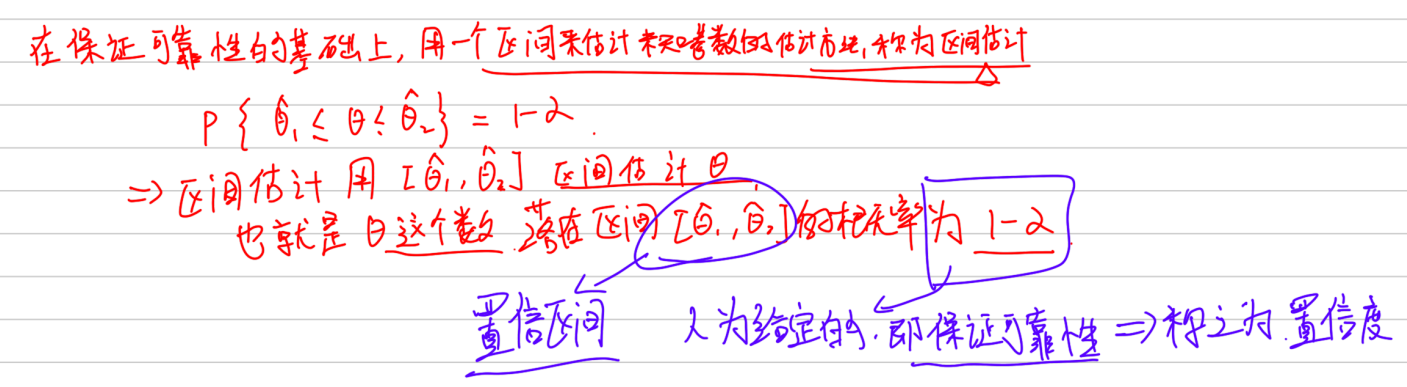 在保证可靠性的基础上,用一个区间来估计未知参数的估计方法,称为区间估计
P{θ̂₁≤θ≤θ̂₂}=1-α.
⇒区间估计 用[θ̂₁,θ̂₂]区间估计θ
也就是θ这个数落在区间[θ̂₁,θ̂₂]的概率为1-α
置信区间 人为给定的.即保证可靠性⇒称之为置信度